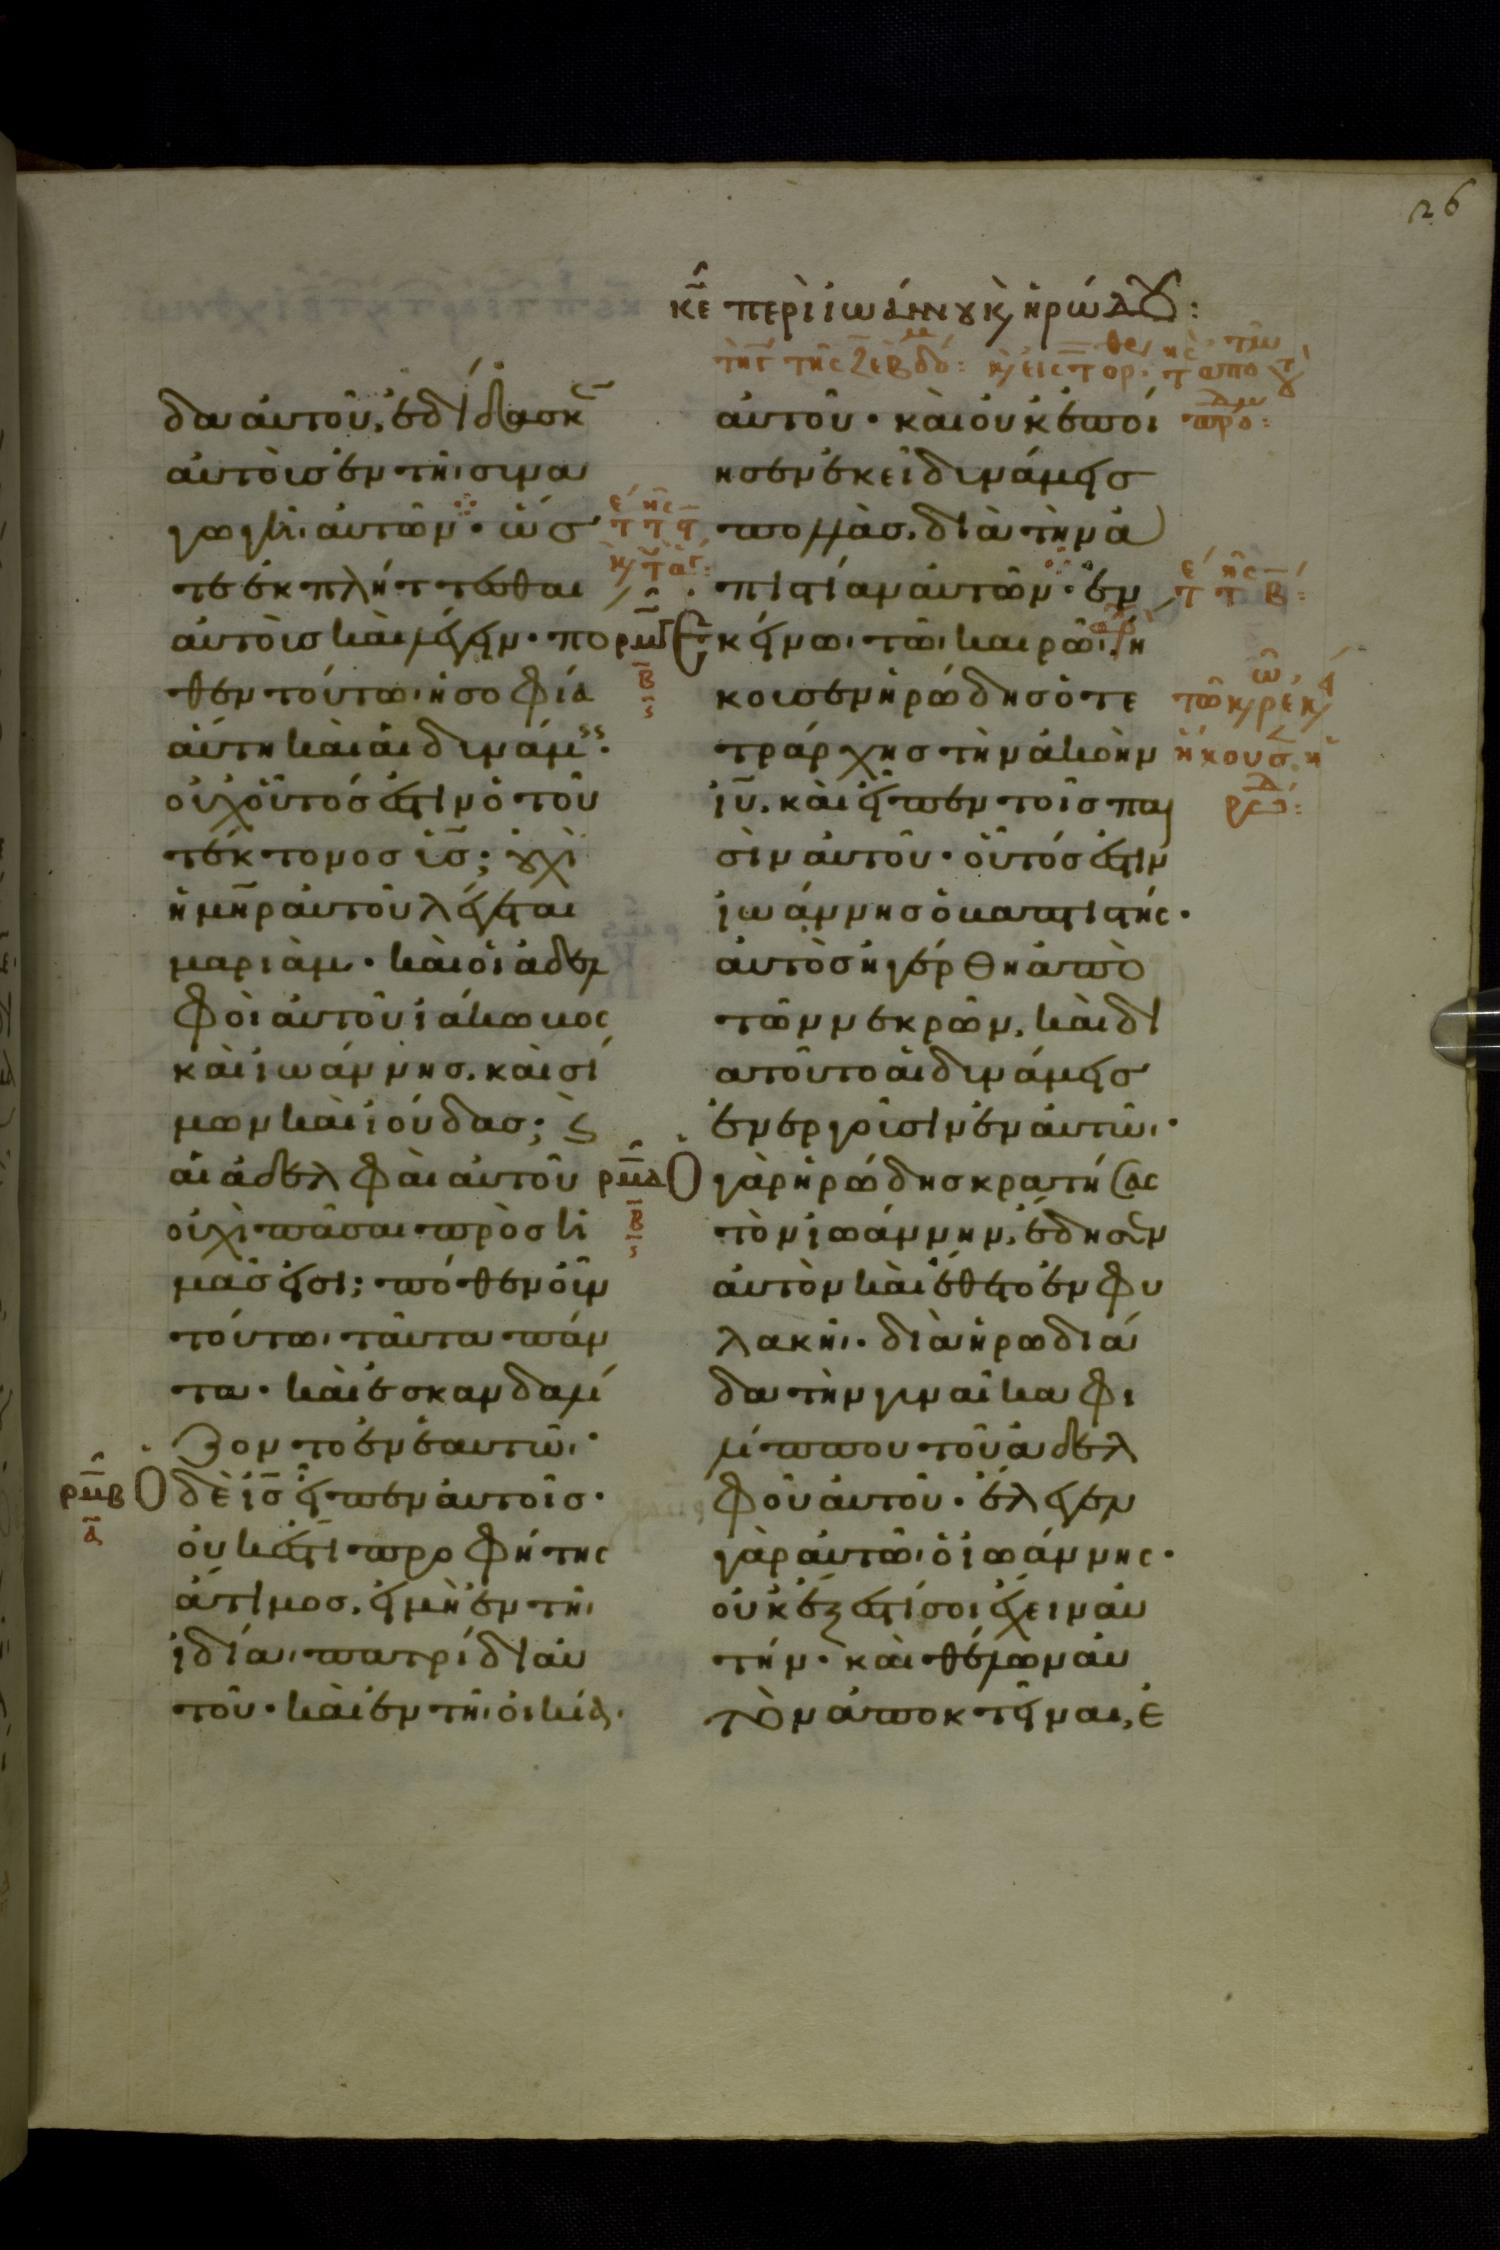 26
κε περὶ ἰωάννου κ ἡρώδου:
δα αὐτοῦ, ἐδίδασκ
αὐτοὺς ἐν τῆι συνα
γωγῆι αὐτῶν· ὥσ
τε ἐκπλήττεσθαι
αὐτοὺς καὶ λέγειν· πο
θεν τούτωι ἡ σοφία
αὕτη καὶ αἱ δυνάμεις·
οὐχ οὗτός ἐστιν ὁ τοῦ
τέκτονος υἱς; οὐχὶ
ἡ μηρ αὐτοῦ λέγεται
μαριάμ· καὶ οἱ ἀδελ
φοὶ αὐτοῦ ἰάκωβος
καὶ ἰωάννης, καὶ σί
μων καὶ ἰούδας; κ
αἱ ἀδελφαὶ αὐτοῦ
οὐχὶ πᾶσαι πρὸς ἡ
μᾶς εἰσι; πόθεν οὖν
τούτωι ταῦτα πάν
τα· καὶ ἐσκανδαλί
ζοντο ἐν ἑαυτῶι·
ρμβ
α
Ὁ δὲ ις εἶπεν αὐτοῖς·
οὐκ ἔστι προφήτης
ἄτιμος, εἰ μὴ ἐν τῆι
ἰδίαι πατρίδι αὐ
τοῦ· καὶ ἐν τῆι οἰκίαι·
αὐτοῦ· καὶ οὐκ ἐποί
ησεν ἐκεῖ δυνάμεις
πολλὰς, διὰ τὴν ἀ
πιστίαν αὐτῶν· ἐν
ρμγ
β
ς
Ἐκείνωι τῶι καιρῶι, ἤ
κουσεν ἡρώδης ὁ τε
τράρχης τὴν ἀκοὴν
ιυ, καὶ εἶπεν τοῖς παι
σὶν αὐτοῦ· οὗτός ἐστιν
ἰωάννης ὁ βαπτιστής·
αὐτὸς ἠγέρθη ἀπὸ
τῶν νεκρῶν, καὶ δι
ατοῦτο αἱ δυνάμεις
ἐνεργοῦσιν ἐν αὐτῶι·
ρμδ
β
ς
Ὁ γὰρ ἡρώδης κρατήσας
τὸν ἰωάννην, ἔδησεν
αὐτὸν καὶ ἔθετο ἐν φυ
λακῆι· διὰ ἡρωδιά
δα τὴν γυναῖκα φι
λίππου τοῦ ἀδελ
φοῦ αὐτοῦ· ἔλεγεν
γὰρ αὐτῶι ὁ ἰωάννης·
οὐκ ἔξεστί σοι ἔχειν αὐ
τήν· καὶ θέλων αὐ
τὸν ἀποκτεῖναι, ἐ